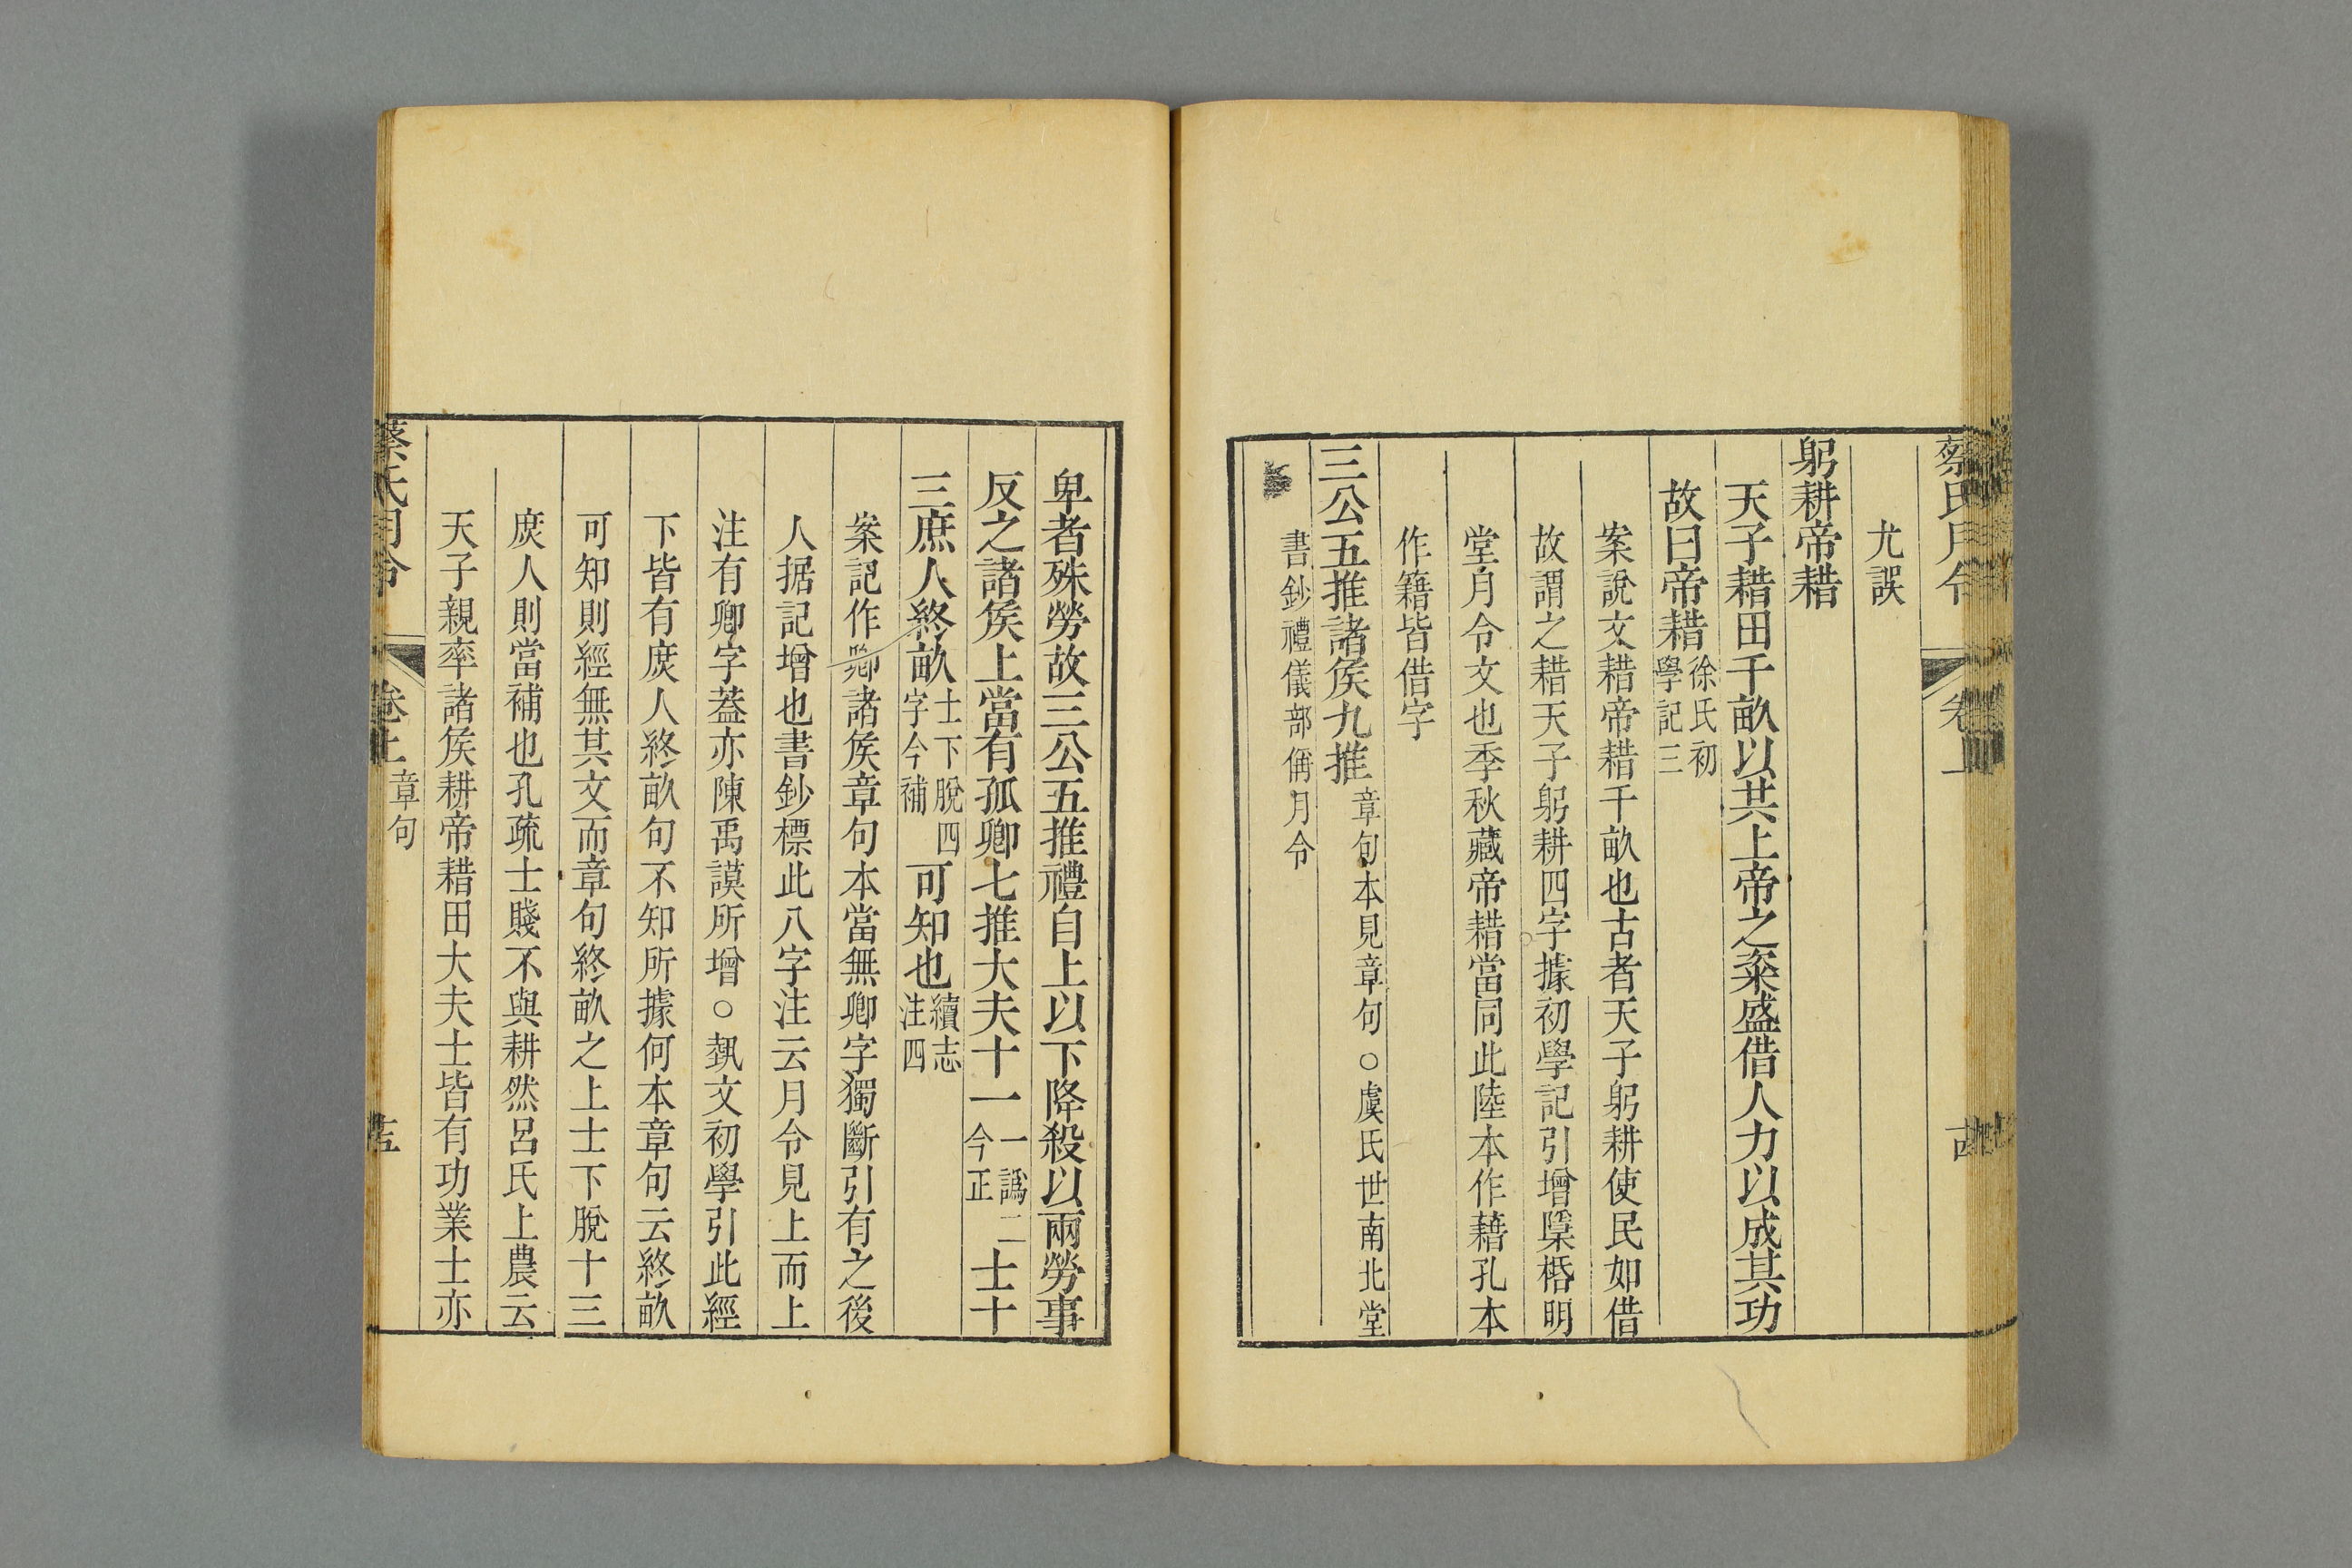 蔡氏月令
卷上
尤誤
躬耕帝耤
天子耤田千畝以共上帝之粢盛借人力以成其功
故曰帝耤徐氏初學記三
案說文耤帝耤千畝也古者天子躬耕使民如借
故謂之耤天子躬耕四字據初學記引增㮣桰明
堂月令文也季秋藏帝耤當同此陸本作藉孔本
作籍皆借字
三公五推諸矦九推章句本見章句○虞氏世南北堂
書鈔禮儀部偁月令
卑者殊勞故三公五推禮自上以下降殺以兩勞事
反之諸矦上當有孤卿七推大夫十一一譌二今正士十
三庶人終畝士下脫四字今補可知也續志注四
案記作卿諸矦章句本當無卿字獨斷引有之後
人据記增也書鈔標此八字注云月令見上而上
注有卿字蓋亦陳禹謨所增○蓺文初學引此經
下皆有庶人終畝句不知所據何本章句云終畝
可知則經無其文而章句終畝之上士下脫十三
庶人則當補也孔疏士賤不與耕然呂氏上農云
天子親率諸矦耕帝耤田大夫士皆有功業士亦
蔡氏月令
卷上
章句